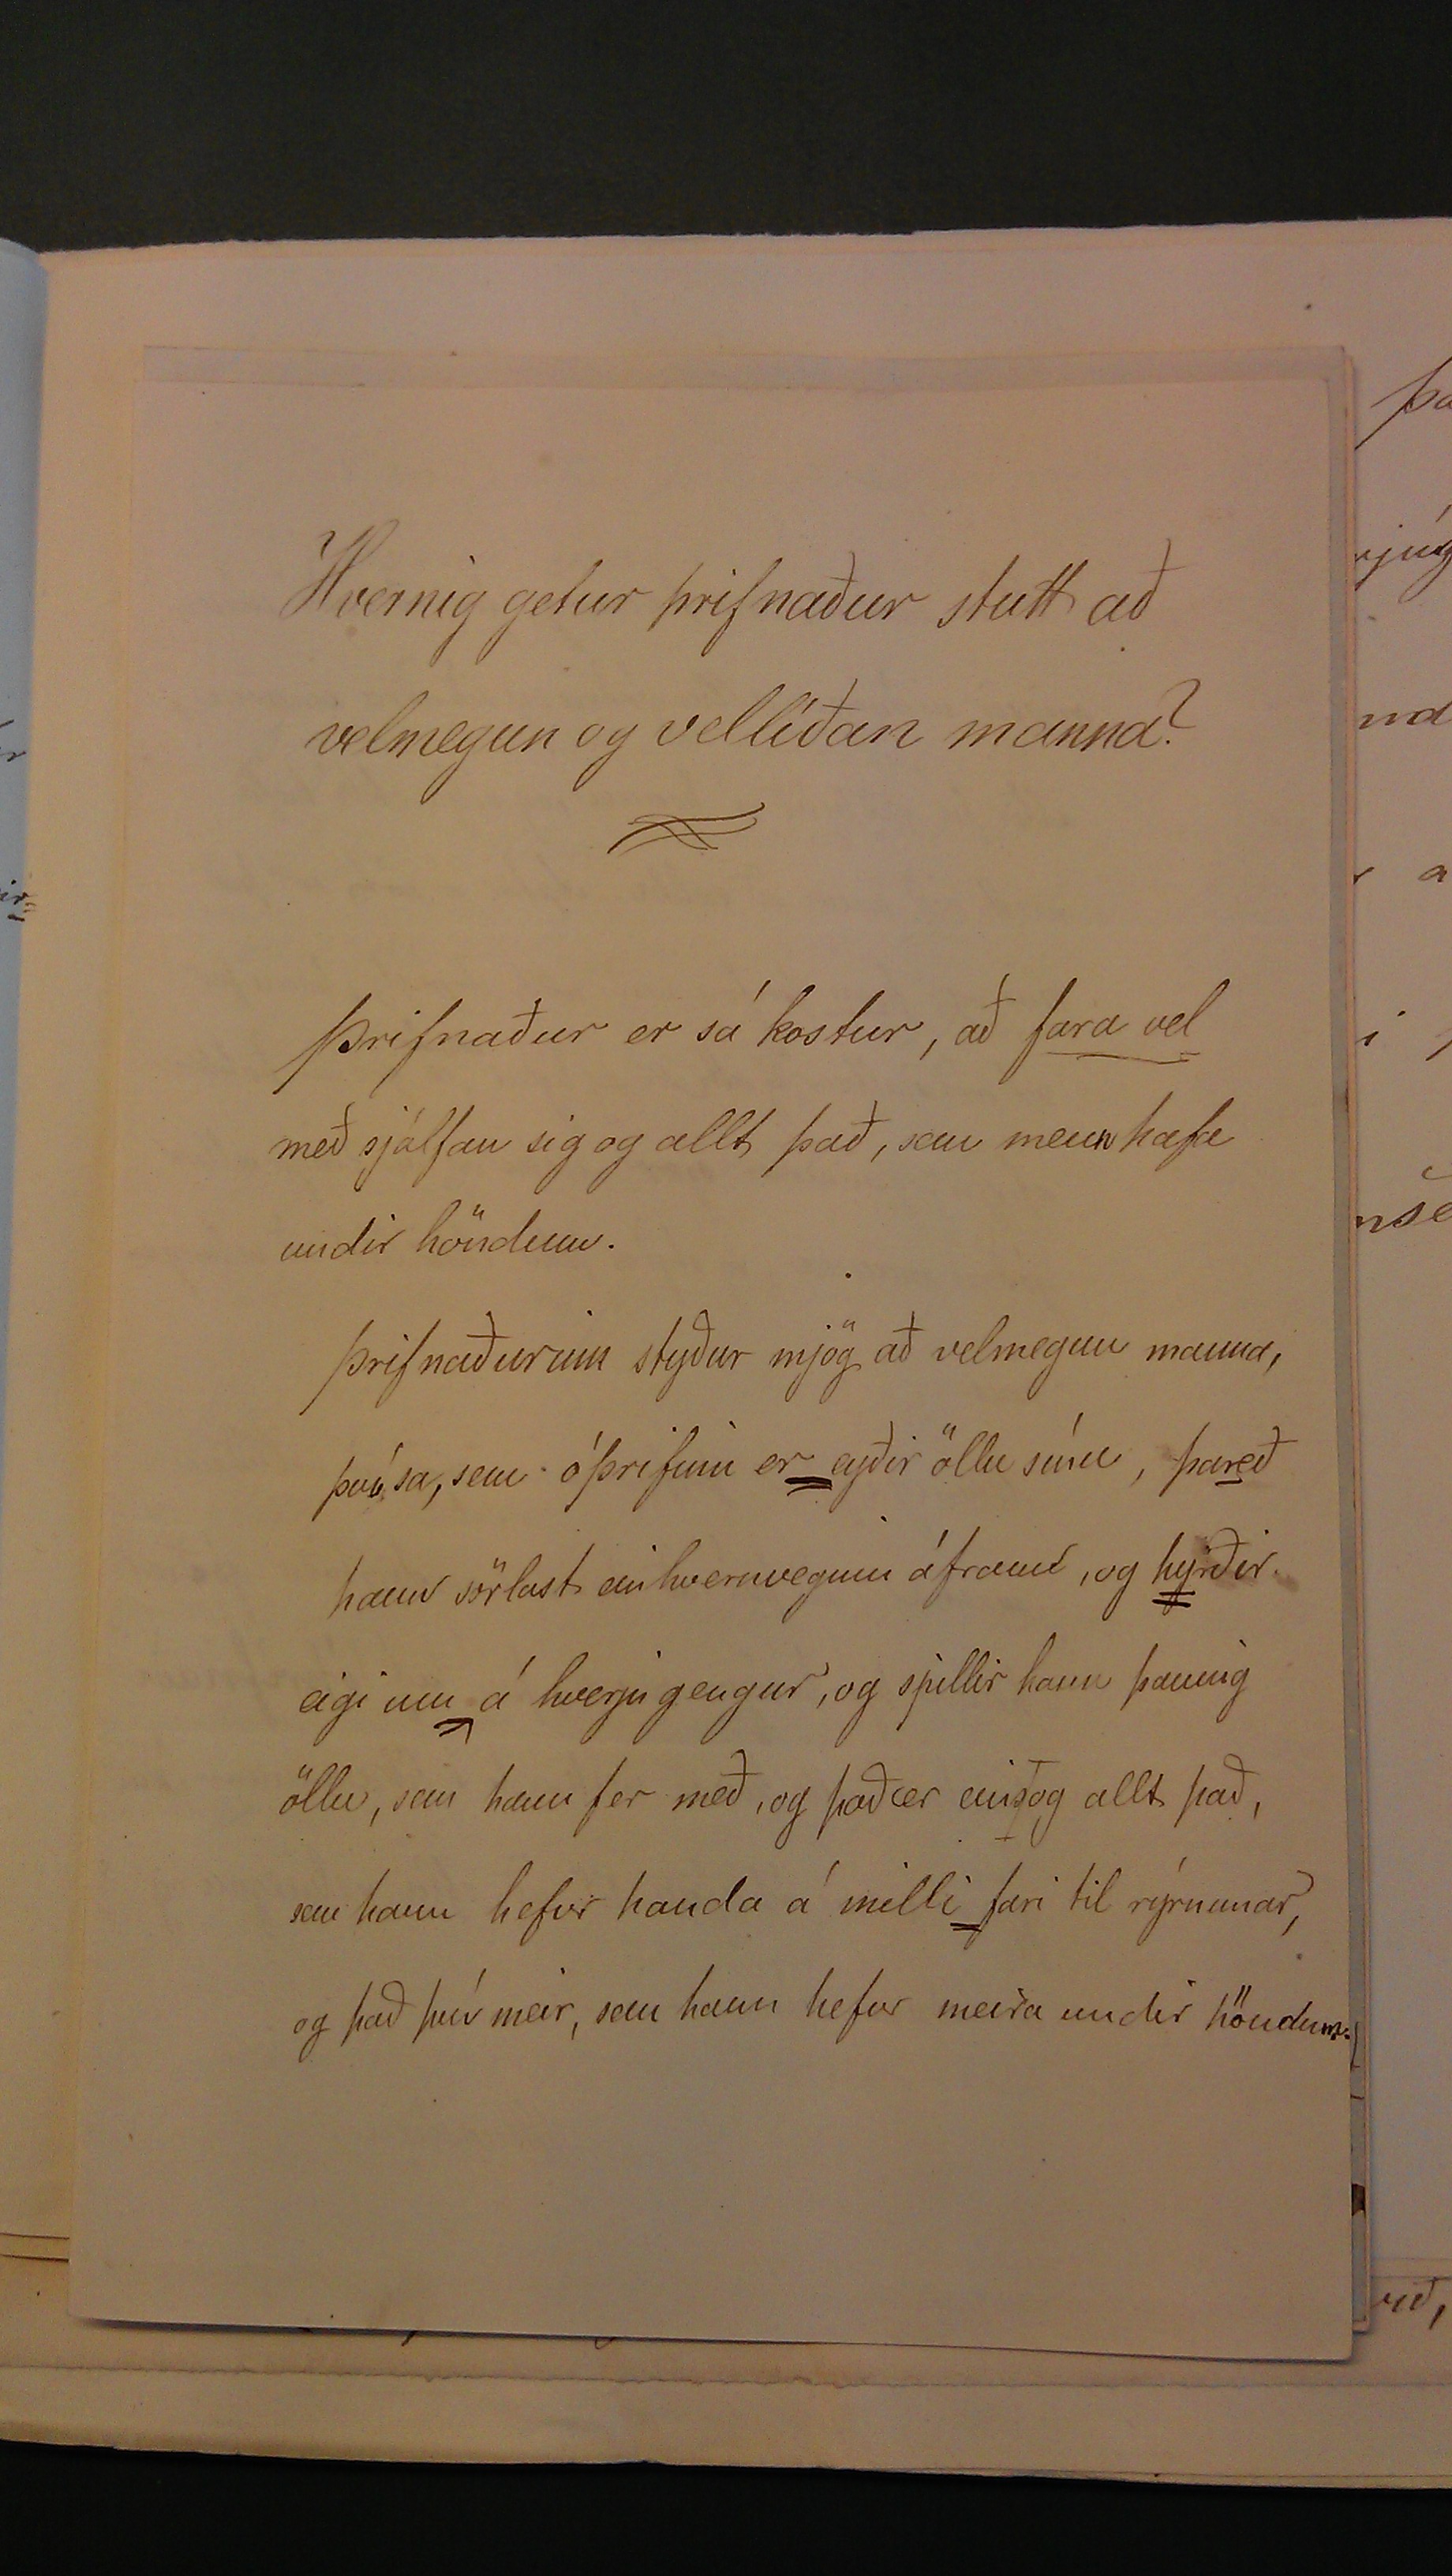 Hvernig getur þrifnaður stutt að
velmegun og vellíðan manna?
Þrifnaður er sá kostur, að fara vel
með sjálfan sig og allt það, sem menn hafa
undir höndum.
Þrifnaðurinn styður mjög að velmegun manna,
því sa, sem óþrifinn er eyðir öllu sínu, þareð
hann sörlast einhvernveginn áfram, og hyrðir
eigi um á hverju gengur, og spillir hann þannig
öllu, sem hann fer með, og það er einsog allt það,
sem hann hefur handa á milli fari til rýrnunar,
og það því meir, sem hann hefur meira undir höndum.